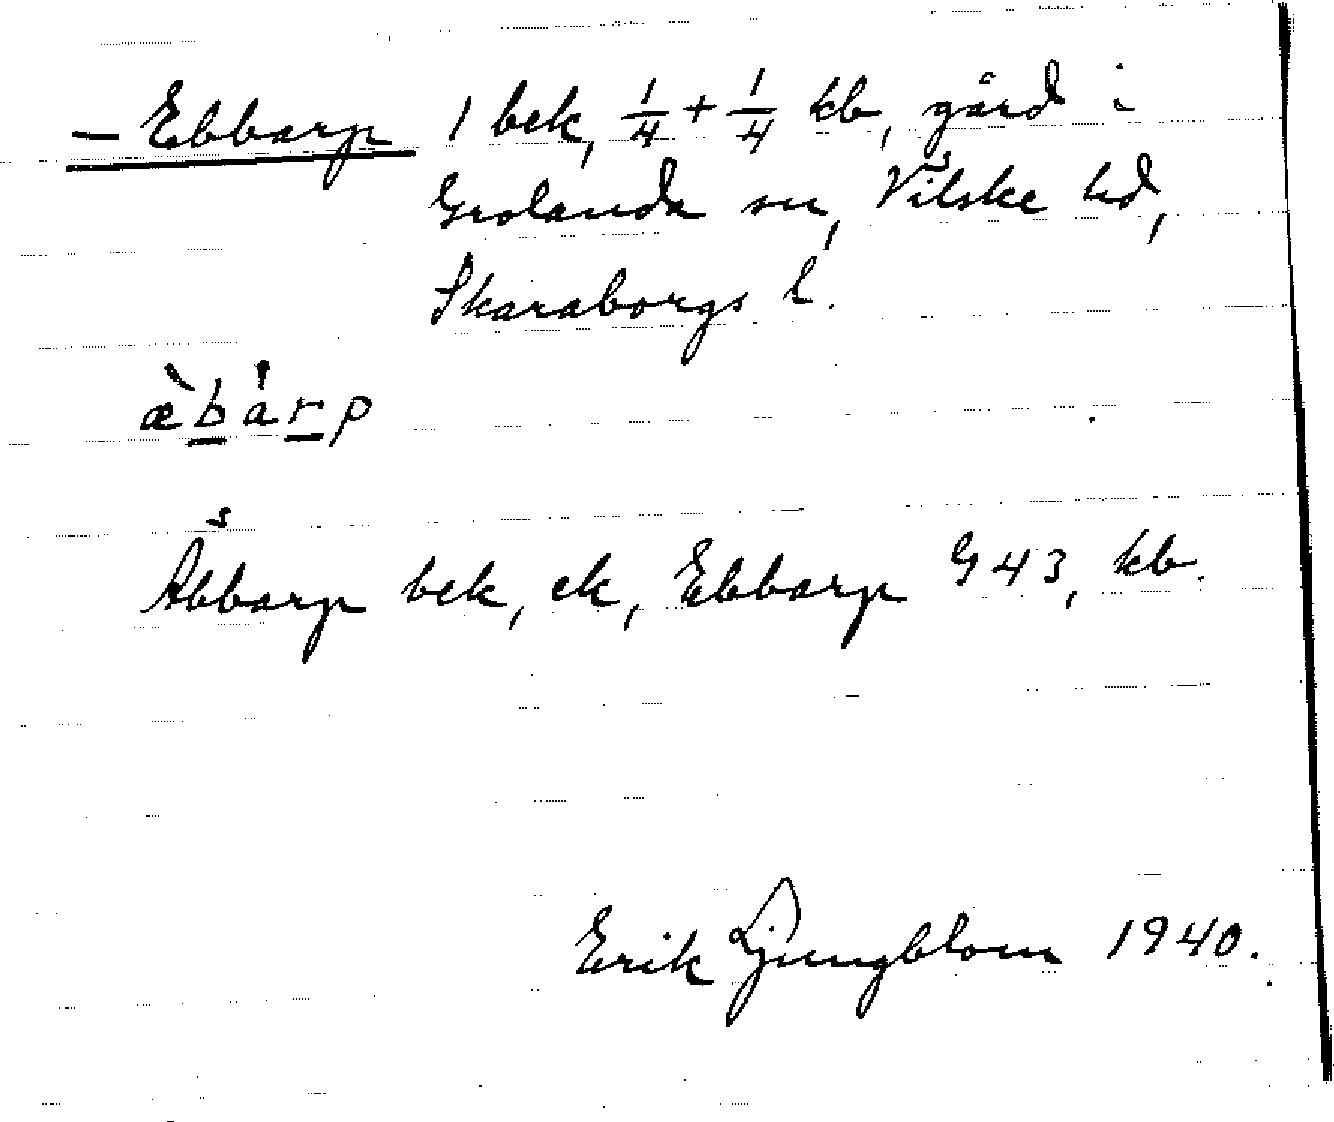 – Ebbarp 1 bek, 1/4 + 1/4 kb, gård i
Grolanda sn, Vilske hd,
Skaraborgs l.
æ̀b̲ár̲p
Äbbarp bek, ek, Ebbarp G 43, kb.
Erik Ljungblom 1940.